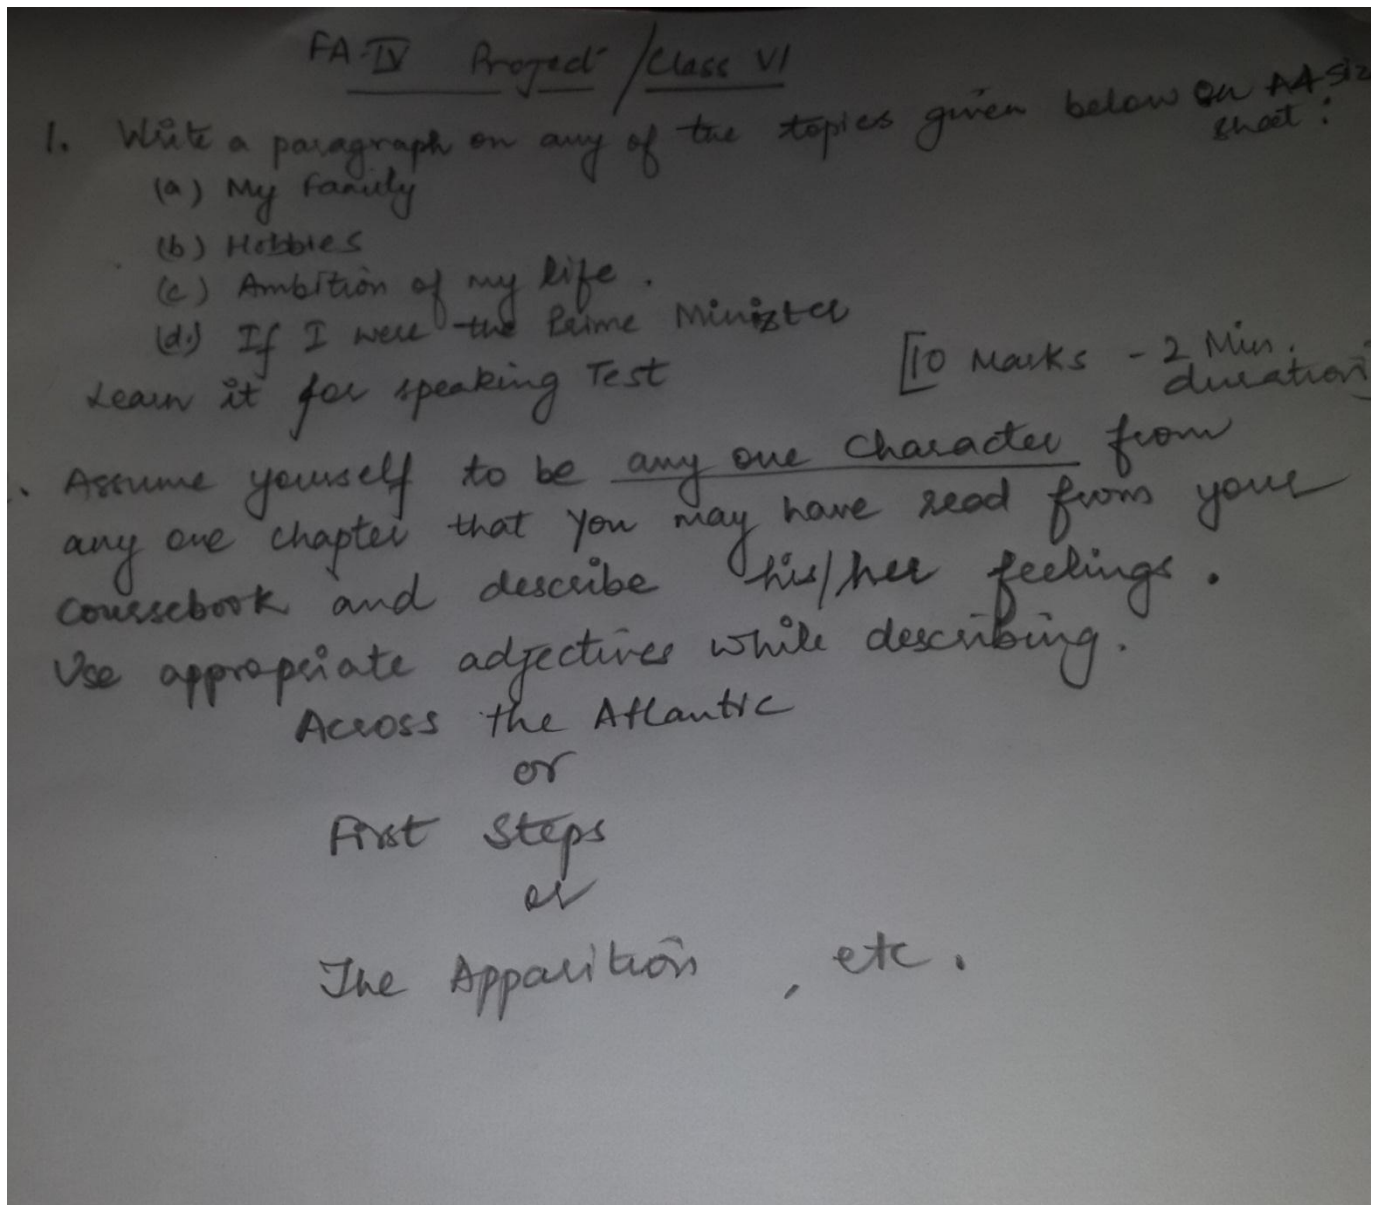 FA-IV Project / Class VI
1. Write a paragraph on any of the topics given below on A4 size
sheet :
(a) My Family
(b) Hobbies
(c) Ambition of my life.
(d) If I were the Prime Minister
Learn it for speaking Test [10 Marks - 2 Min.
duration]
Assume yourself to be any one Character from
any one chapter that you may have read from your
coursebook and describe his/her feelings.
Use appropriate adjectives while describing.
Across the Atlantic
or
First Steps
or
The Apparition, etc.